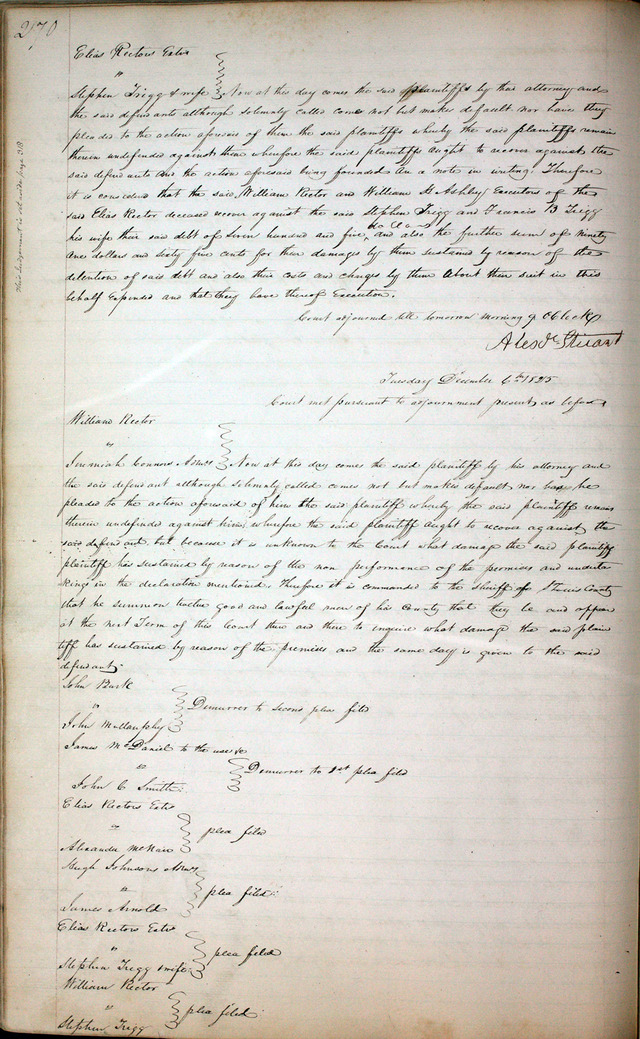 270
Elias Rectors Extrs
"
Stephen Trigg & wife Now at this day comes the said plaintiffs by their attorney and
the said defendants although solemnly called comes not but makes default nor have they
pleaded to the action aforesaid of them the said plaintiffs whereby the said plaintiffs remain
therein undefended against them wherefore the said plaintiffs ought to recover against the
said defendants and the action aforesaid being founded on a note in writing. Therefore
it is considered that the said William Rector and William H Ashley Executors of the
said Elias Rector deceased recover against the said Stephen Trigg and Francis B Trigg
his wife their said debt of Seven hundred and five dollars and also the further sum of Ninety
one dollars and sixty five cents for their damages by them sustained by reason of the
detention of said debt and also their costs and charges by them about their suit in this
behalf Expended and that they have thereof Execution.
Court adjourned till tomorrow morning 9 OClock
Alexdr Stuart
Tuesday December 6th 1825
Court met pursuant to adjournment present as before
William Rector
"
Jeremiah Connors Admr Now at this day comes the said plaintiff by his attorney and
the said defendant although solemnly called comes not but makes default nor has he
pleaded to the action aforesaid of him the said plaintiff whereby the said plaintiff remains
therein undefended against him, wherefore the said plaintiff ought to recover against the
said defendant but because it is unknown to the Court what damage the said plaintiff
plaintiff has sustained by reason of the non performance of the promises and underta
kings in the declaration mentioned. Therefore it is commanded to the sheriff of St Louis County
that he summon twelve good and lawful men of his County that they be and appear
at the next Term of this Court then and there to inquire what damage the said plain
tiff has sustained by reason of the premises and the same day is given to the said
defendant.
John Burk
"
John Mullanphy Demurrer to second plea filed
James McDaniel to the use &c
"
John C Smith Demurrer to 1st plea filed
Elias Rectors Extrs
"
Alexander McNair plea filed
Hugh Johnsons Admr
"
James Arnold plea filed
Elias Rectors Extrs
"
Stephen Trigg & wife plea filed
William Rector
"
Stephen Trigg plea filed